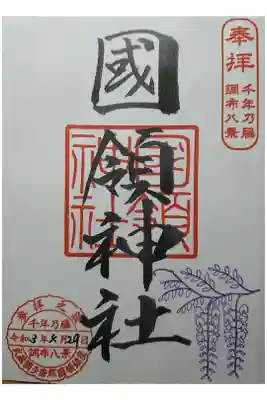 奉拝
千年乃藤
調布八景
國領神社
國領
神社
千年乃藤
令和3年5月29日
調布八景